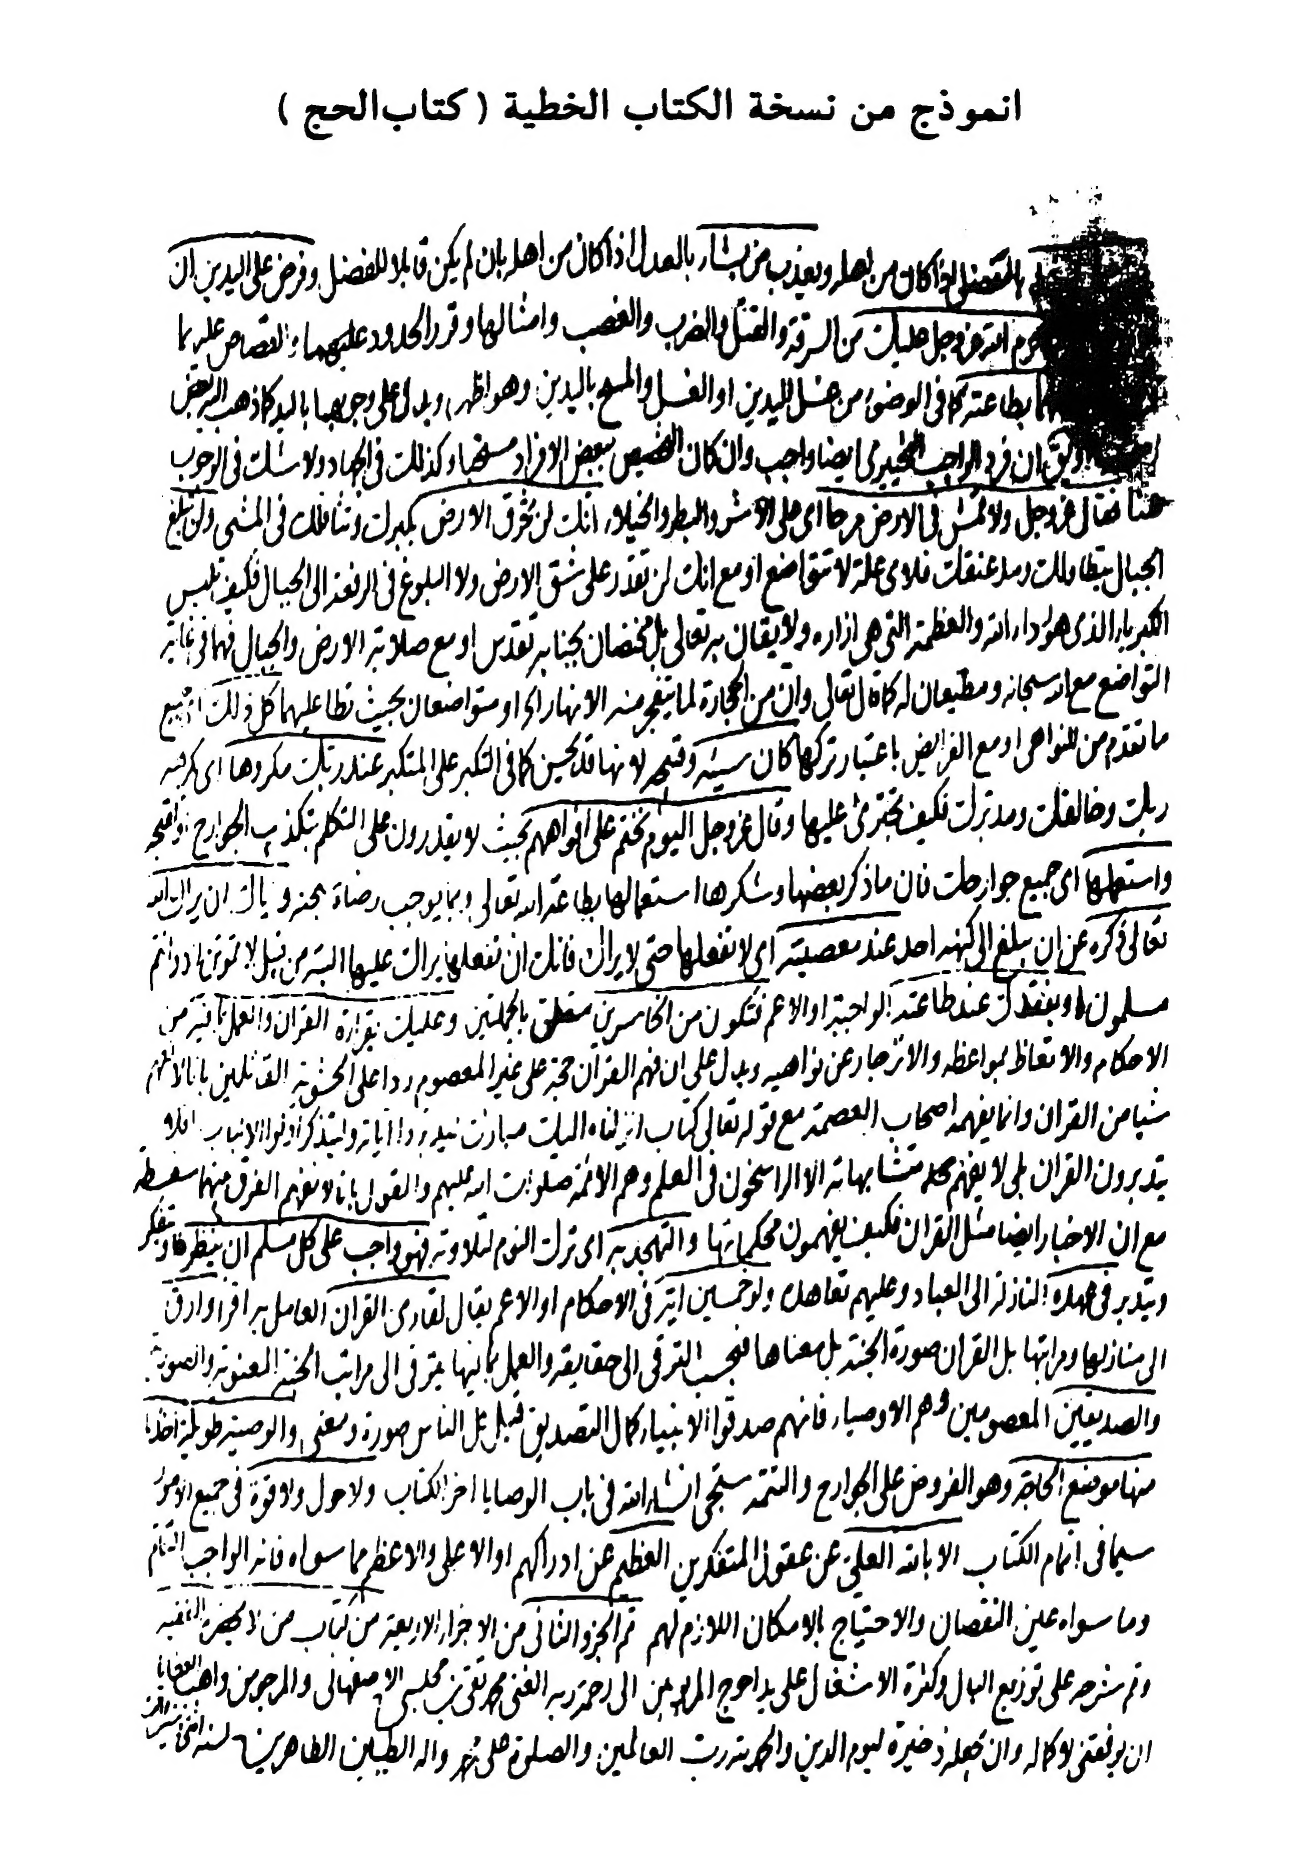 انموذج من نسخة الكتاب الخطية ( كتاب الحج )
بالتفضل اذا كان من اهله ويعذب من يشاء بالعدل اذا كان من اهله بان لم يكن قابلا للفضل وفرض على اليدين ان
حرم الله عز وجل عليك من السرقة والقتل والضرب والغصب وامثالها وقرر الحدود عليهما والقصاص عليهما
بطاعته كما فى الوضوء من غسل اليدين او الغسل والمسح باليدين وهو اظهر ويدل على وجوبها باليد كما ذهب اليه بعض
ان فرد الواجب التخييرى ايضا واجب وان كان التخصيص ببعض الافراد مستحبا وكذلك فى الجهاد ولا شك فى الوجوب
هنا فقال عز وجل ولا تمش فى الارض مرحا اى على الاشر والبطر والخيلاء انك لن تخرق الارض بكبرك وتثاقلك فى المشى ولن تبلغ
الجبال بتطاولك ومد عنقك فلاى علة لا تتواضع او مع انك لن تقدر على شق الارض ولا البلوغ فى الرفعة الى الجبال فكيف تلبس
الكبرياء الذى هو رداء الله والعظمة التى هى ازاره ولا يقان به تعالى بل مختصان بجنابه تقدس او مع صلابة الارض والجبال فهما فى غاية
التواضع مع الله سبحانه ومطيعان له كما قال تعالى وان من الحجارة لما يتفجر منه الانهار الخ او متواضعان بحيث تطا عليهما كل ذلك اى جميع
ما تقدم من النواهى او مع الفرايض باعتبار تركها كان سيئه وقبيحه لانها قد تحسن كما فى التكبر على المتكبر عند ربك مكروها اى كرهه
ربك وخالقك ومدبرك فكيف تجترئ عليها وقال عز وجل اليوم نختم على افواههم بحيث لا يقدرون على التكلم بتكذيب الجوارح
واستعملها اى جميع جوارحك فان ما ذكر بعضها وشكرها استعمالها بطاعة الله تعالى وبما يوجب رضاه بجنه واياك ان يراك الله
تعالى ذكره عن ان يبلغ الى كنهه احد عند معصيته اى لا تفعلها حتى لا يراك فانك ان تفعلها يراك عليها البتة من قبيل لا تموتن الا وانتم
مسلمون او يفقدك عند طاعته الواجبة او الاعم فتكون من الخاسرين متعلق بالجملتين وعليك بقراءة القران والعمل بما فيه من
الاحكام والاتعاظ بمواعظه والانزجار عن نواهيه ويدل على ان فهم القران حجة على غير المعصوم ردا على الحشوية القائلين بانا لا نفهم
شيا من القران وانما يفهمه اصحاب العصمة مع قوله تعالى كتاب انزلناه اليك مبارك ليدبروا اياته وليتذكر اولوا الالباب افلا
يتدبرون القران بلى لا يفهم متشابهاته الا الراسخون فى العلم وهم الائمة صلوات الله عليهم والقول بانا لا نفهم الفرق منهما سفسطة
مع ان الاخبار ايضا مثل القران فكيف يفهمون محكماتها والتهجد به اى ترك النوم لتلاوته فهو واجب على كل مسلم ان ينظر ويتفكر
ويتدبر فى عهده النازلة الى العباد وعليهم تعاهده ولو خمسين اية فى الاحكام او الاعم يقال لقارى القران العامل به اقرا وارق
الى منازلها ومراتبها بل القران صورة الجنة بل معناها فبحسب الترقى الى حقايقه والعمل بما فيها يترقى الى مراتب الجنة المعنوية والصورية
والصديقين المعصومين وهم الاوصياء فانهم صدقوا الانبياء كمال التصديق قبل كل الناس صورة ومعنى والوصية طويلة اخذنا
منها موضع الحاجة وهو الفروض على الجوارح والتتمة ستجئ انشاء الله فى باب الوصايا اخر الكتاب ولا حول ولا قوة فى جميع الامور
سيما فى اتمام الكتاب الا بالله العلى عن عقول المتفكرين العظيم عن ادراكهم او الاعلى والاعظم مما سواه فانه الواجب التام
وما سواه عين النقصان والاحتياج بالامكان اللازم لهم تم الجزو الثانى من الاجزاء الاربعة من كتاب من لا يحضره الفقيه
وتم شرحه على توزيع البال وكثرة الاشغال على يد احوج المربوبين الى رحمة ربه الغنى محمد تقى بن مجلسى الاصفهانى والمرجو من واهب العطايا
ان يوفقنى لاكماله وان يجعله ذخيرة ليوم الدين والحمد لله رب العالمين والصلوة على محمد واله الطيبين الطاهرين